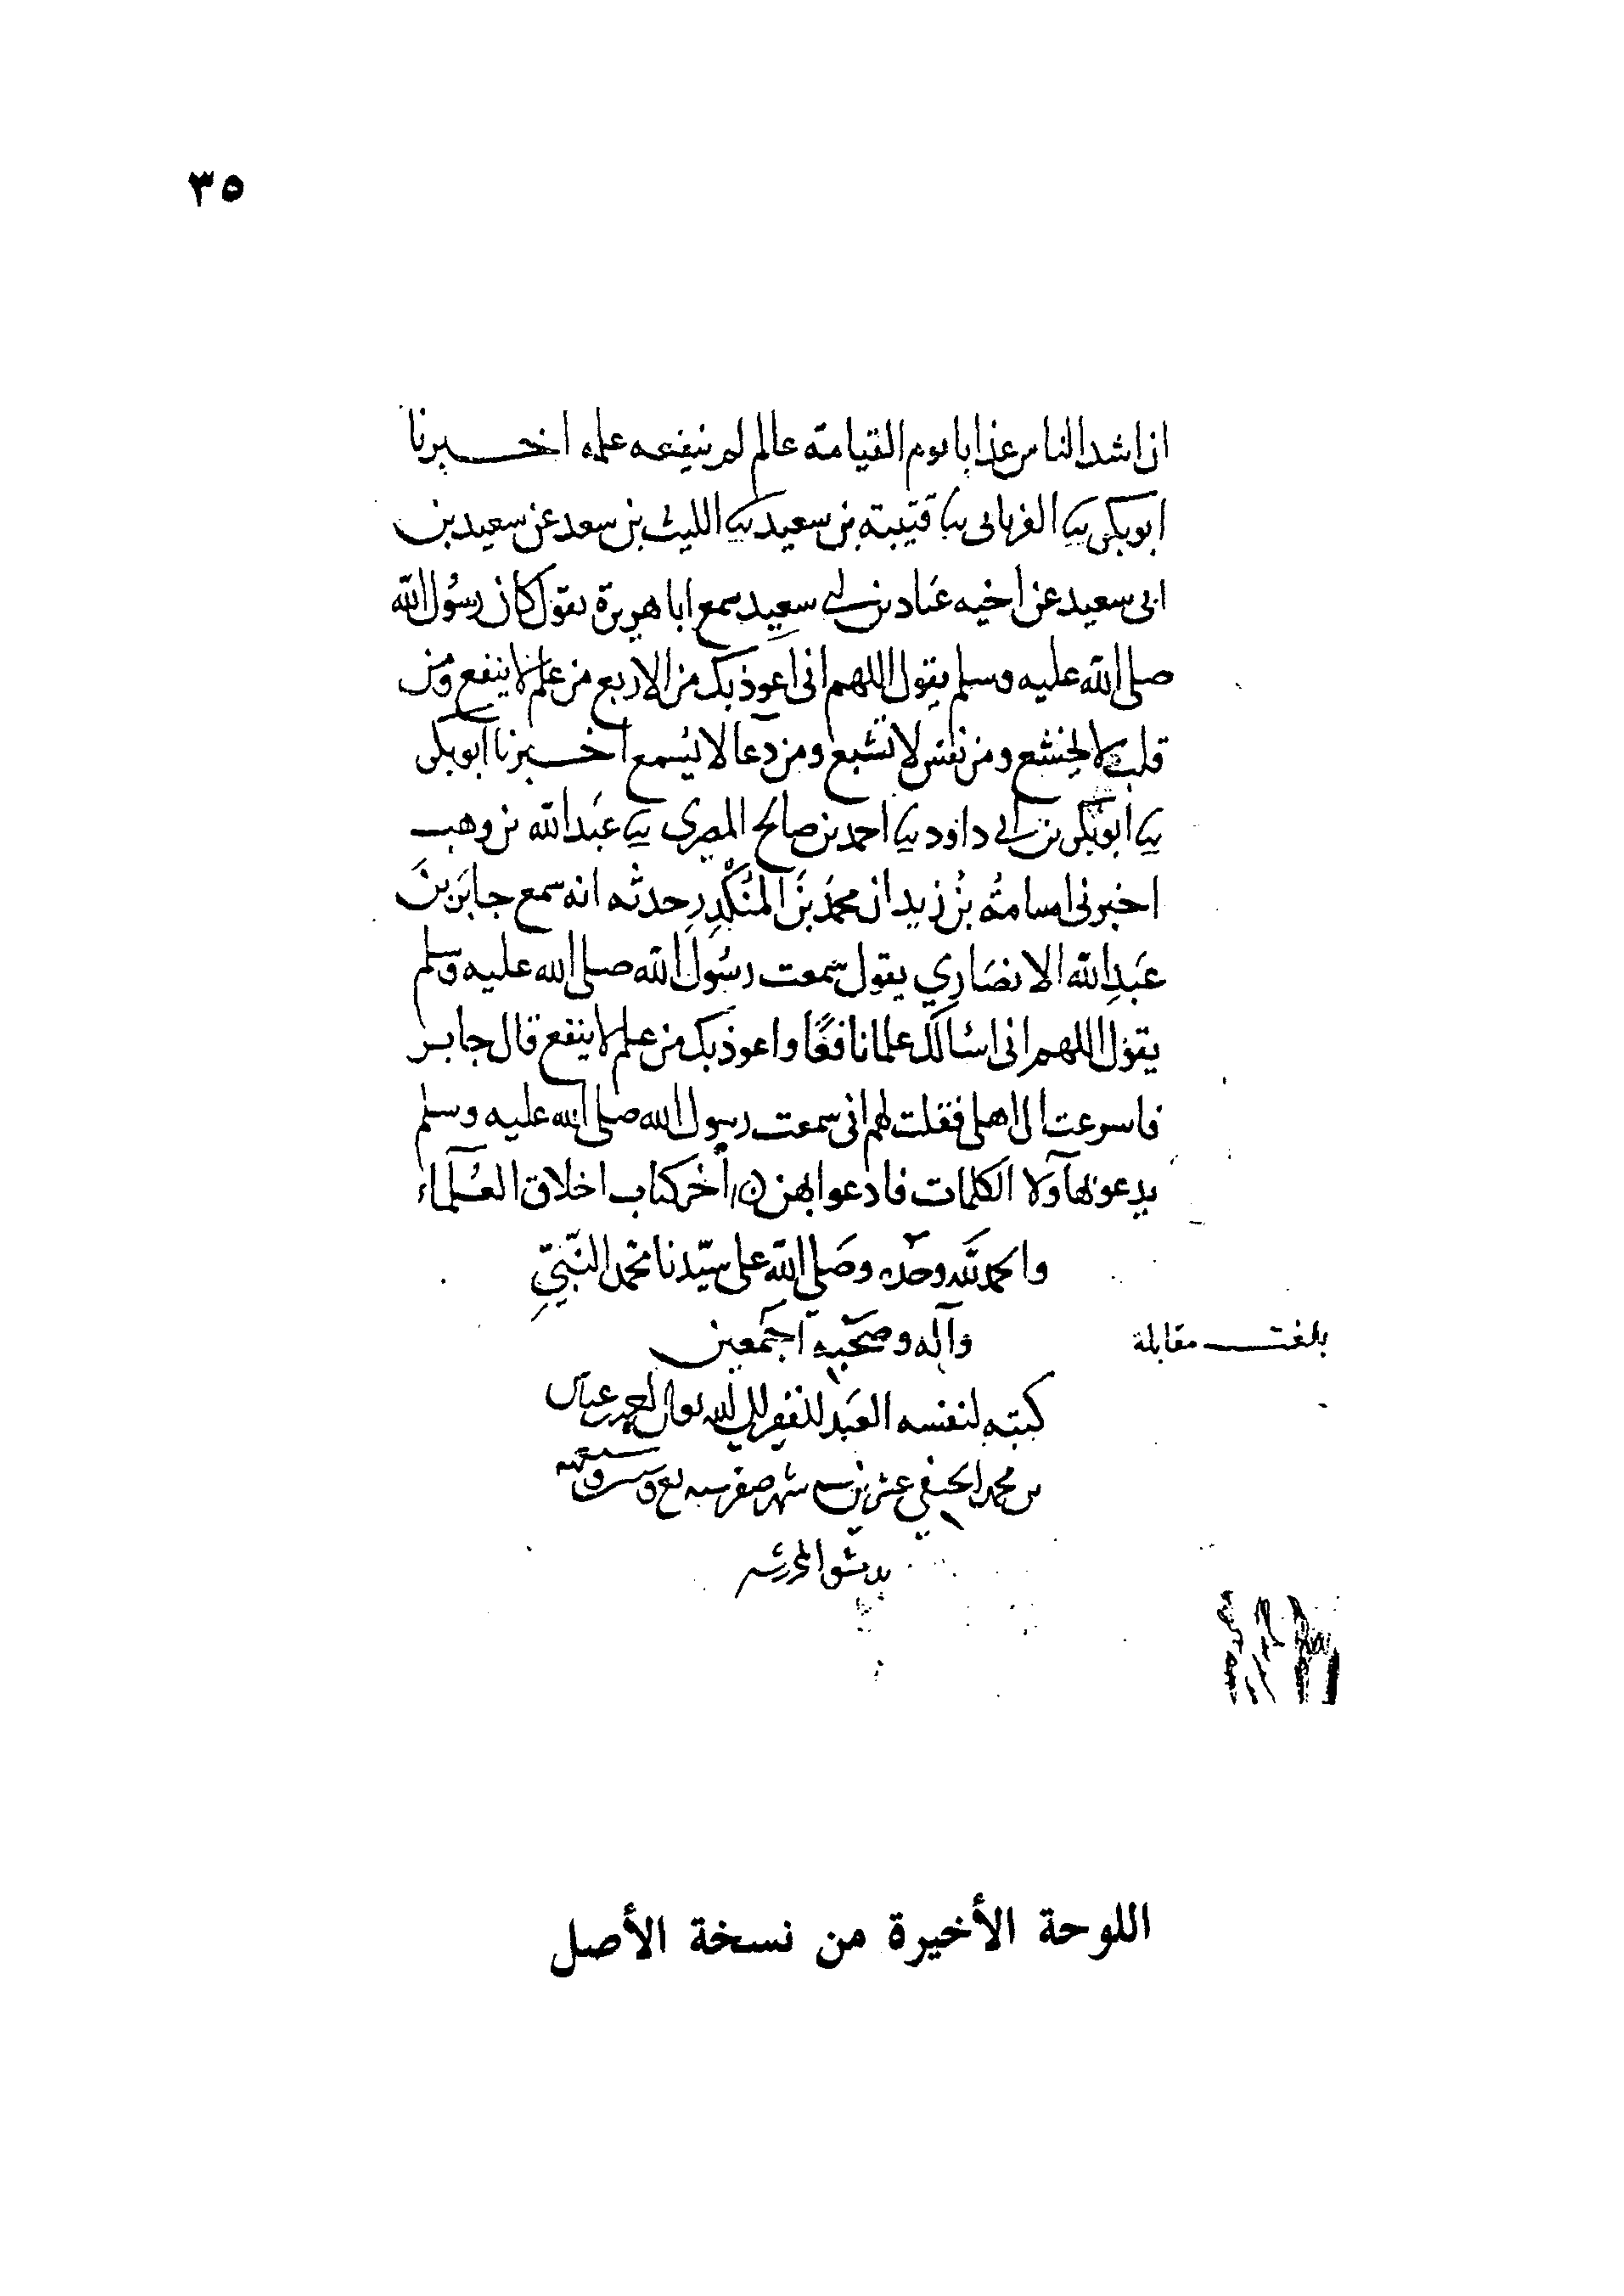 ٣٥
ان اشد الناس عذابا يوم القيامة عالم لم ينفعه علمه اخبرنا
ابوبكر ثنا الفريابي ثنا قتيبة بن سعيد ثنا الليث بن سعد عن سعيد بن
ابي سعيد عن اخيه عباد بن ابي سعيد سمع ابا هريرة يقول كان رسول الله
صلى الله عليه وسلم يقول اللهم اني اعوذ بك من الاربع من علم لا ينفع ومن
قلب لا يخشع ومن نفس لا تشبع ومن دعا لا يُسمع اخبرنا ابوبكر
ثنا ابوبكر بن ابي داود ثنا احمد بن صالح المصري ثنا عبد الله بن وهب
اخبرني اسامةُ بنُ زيد ان محمدَ بنَ المُنْكَدِرِ حدثه انه سمع جابرَ بنَ
عَبدِ الله الانصَاري يقول سمعت رسُول الله صلى الله عليه وسلم
يقول اللهم اني اسالك علما نافعًا واعوذ بك من علم لا ينفع قال جابر
فاسرعت الى اهلي فقلت لهم اني سمعت رسول الله صلى الله عليه وسلم
يدعو بهآولا الكلمات فادعوا بهن آخر كتاب اخلاق العُلمآء
والحمد لله وحده وصَلى الله على سيّدنا محمد النّبيّ
وآله وصَحْبِه اجمَعين
بلغت مقابلة
كتبه لنفسه العَبد الفقير الى الله تعالى
بن محمد الحنفي شهر صفر سنة
اللوحة الأخيرة من نسخة الأصل